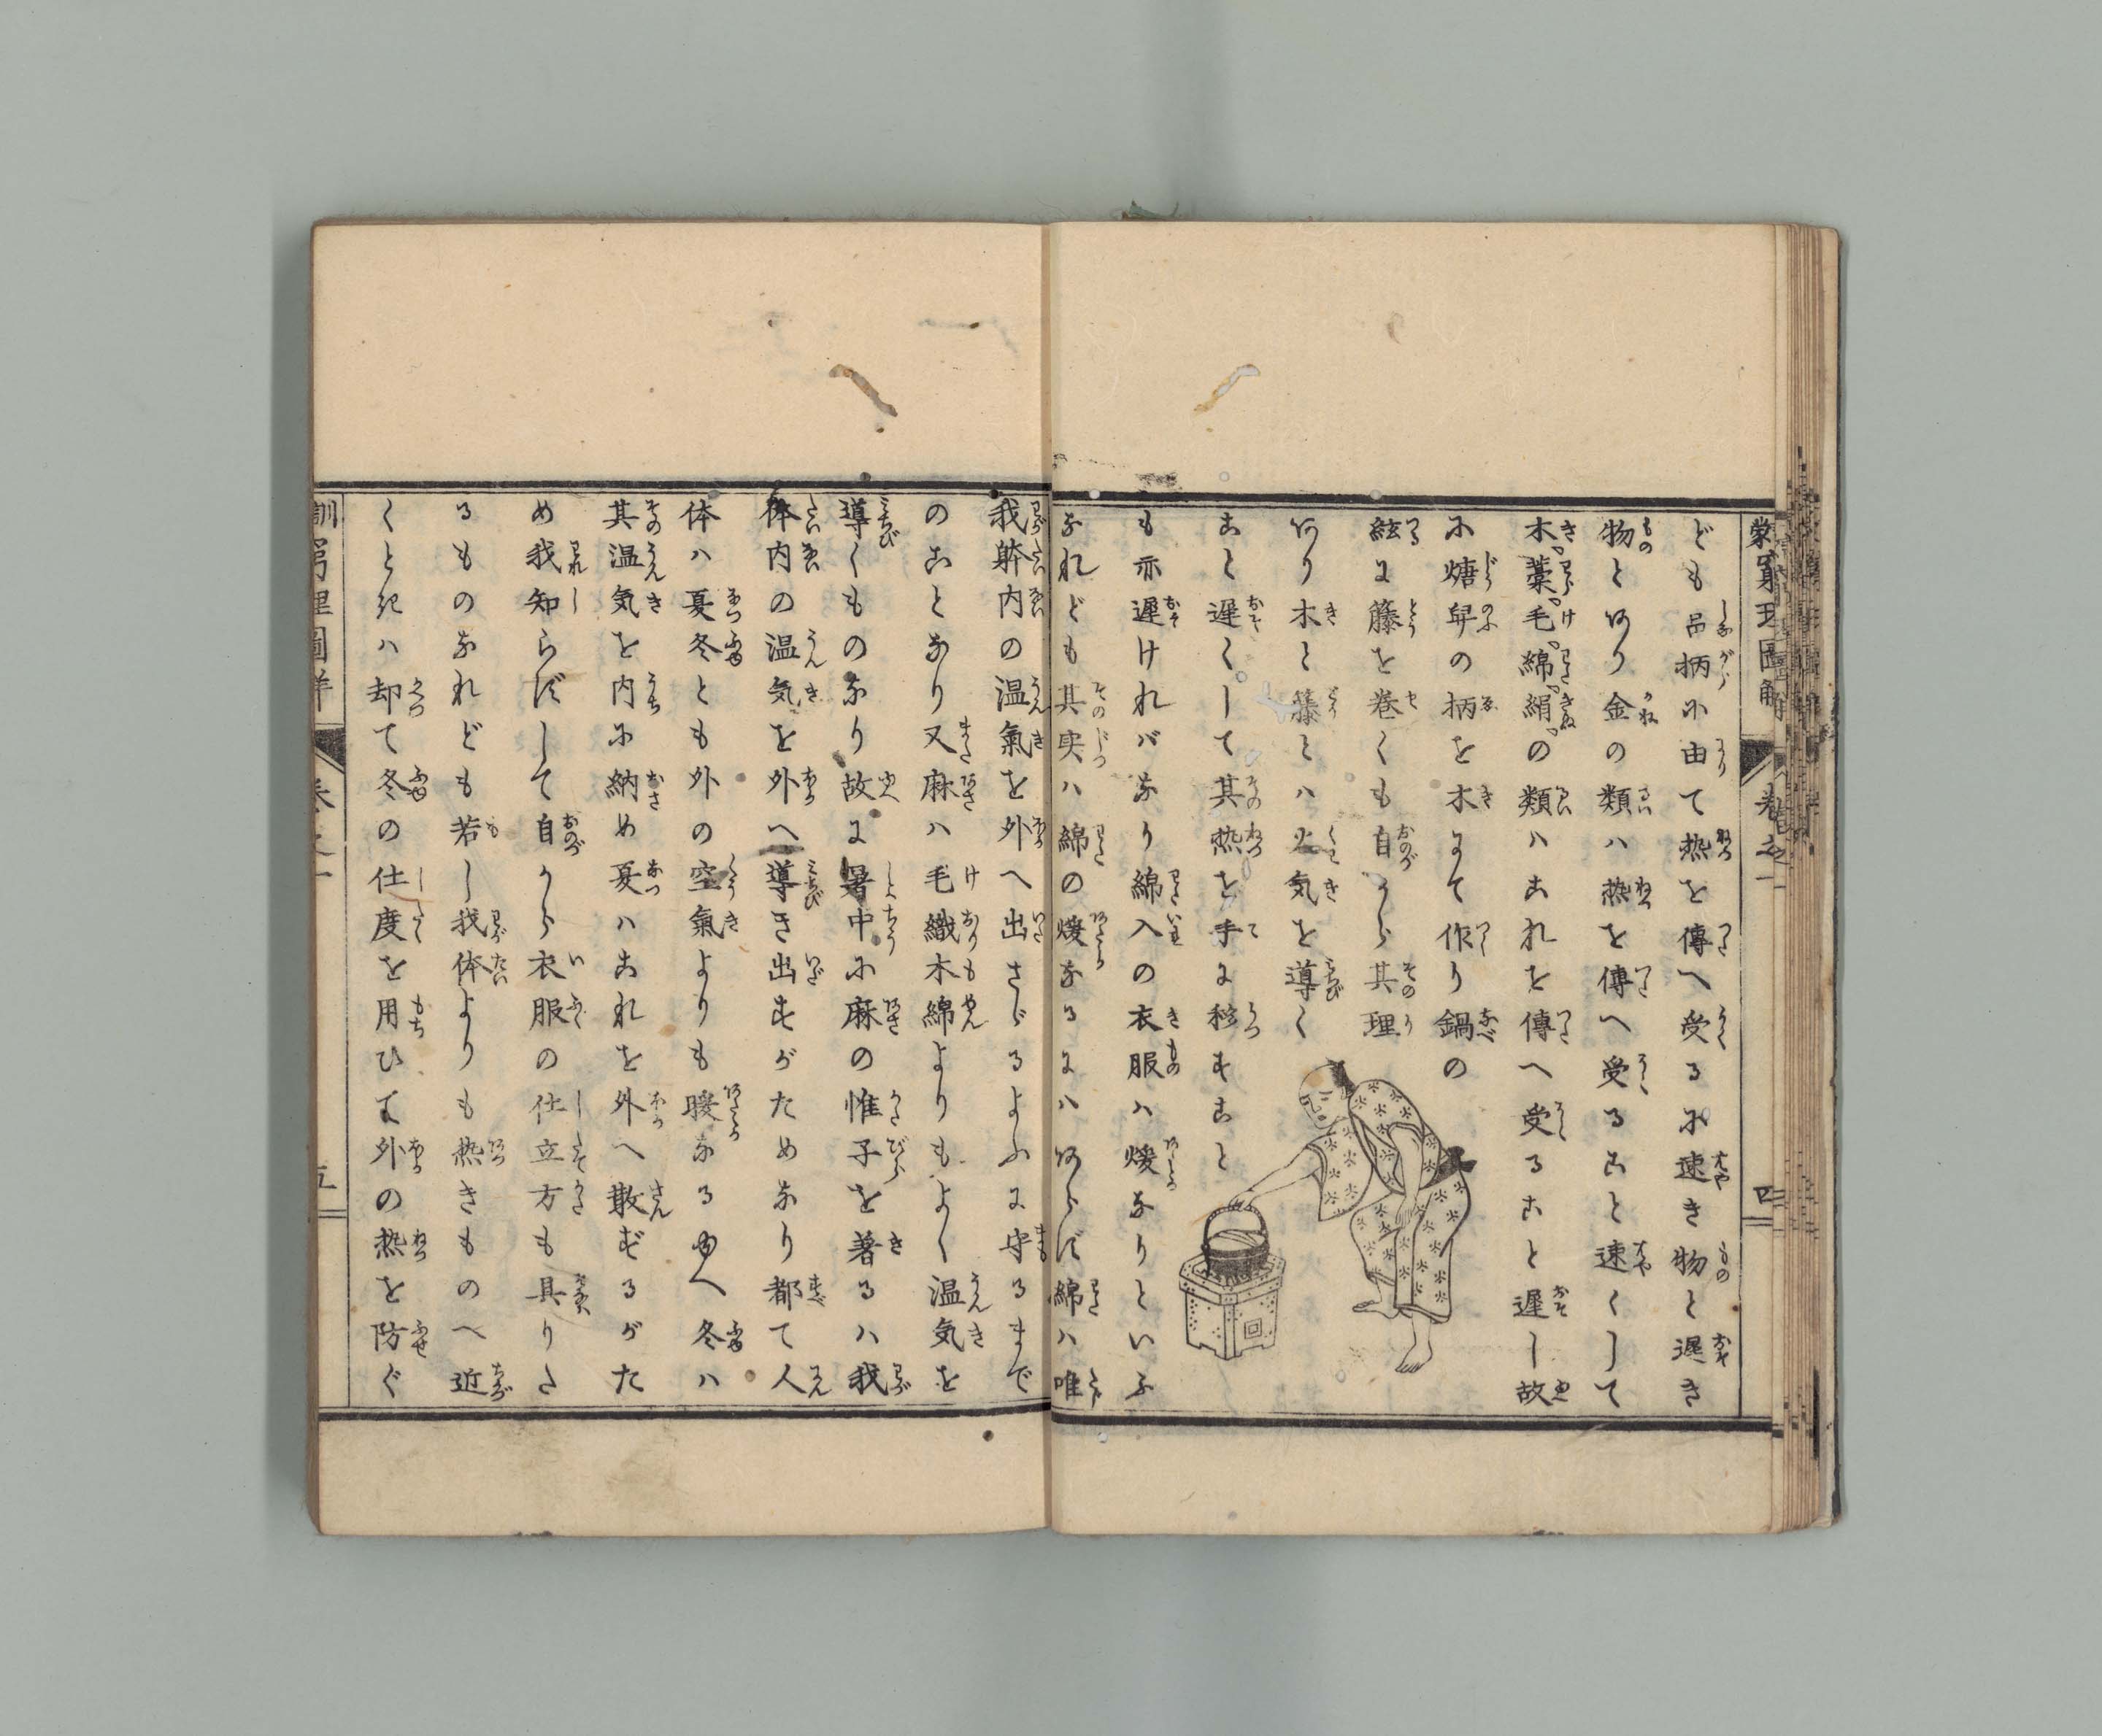 ども品柄に由て熱を傳へ受るに速き物と遅き
物とあり金の類ハ熱を傳へ受ること速くして
木藁毛綿絹の類ハこれを傳へ受ること遅し故
に焃斗の柄を木まて作り鍋の
絃に籐を巻くも自から其理
あり木と籐とハ火気を導く
こと遅くして其熱を手に移すこと
も亦遅ければなり綿入の衣服ハ煖なりといふ
なれども其実ハ綿の煖なるにハあらず綿ハ唯
我躰内の温氣を外へ出さゞるよふに守るまで
のことなり又麻ハ毛織木綿よりもよく温気を
導くものなり故に暑中に麻の惟子を著るハ我
体内の温気を外へ導き出すがためなり都て人
体ハ夏冬とも外の空氣よりも暖なるゆへ冬ハ
其温気を内に納め夏ハこれを外へ散ずるがた
め我知らずして自から衣服の仕立方も具りた
るものなれども若し我体よりも熱きものへ近
くときハ却て冬の仕度を用ひて外の熱を防ぐ